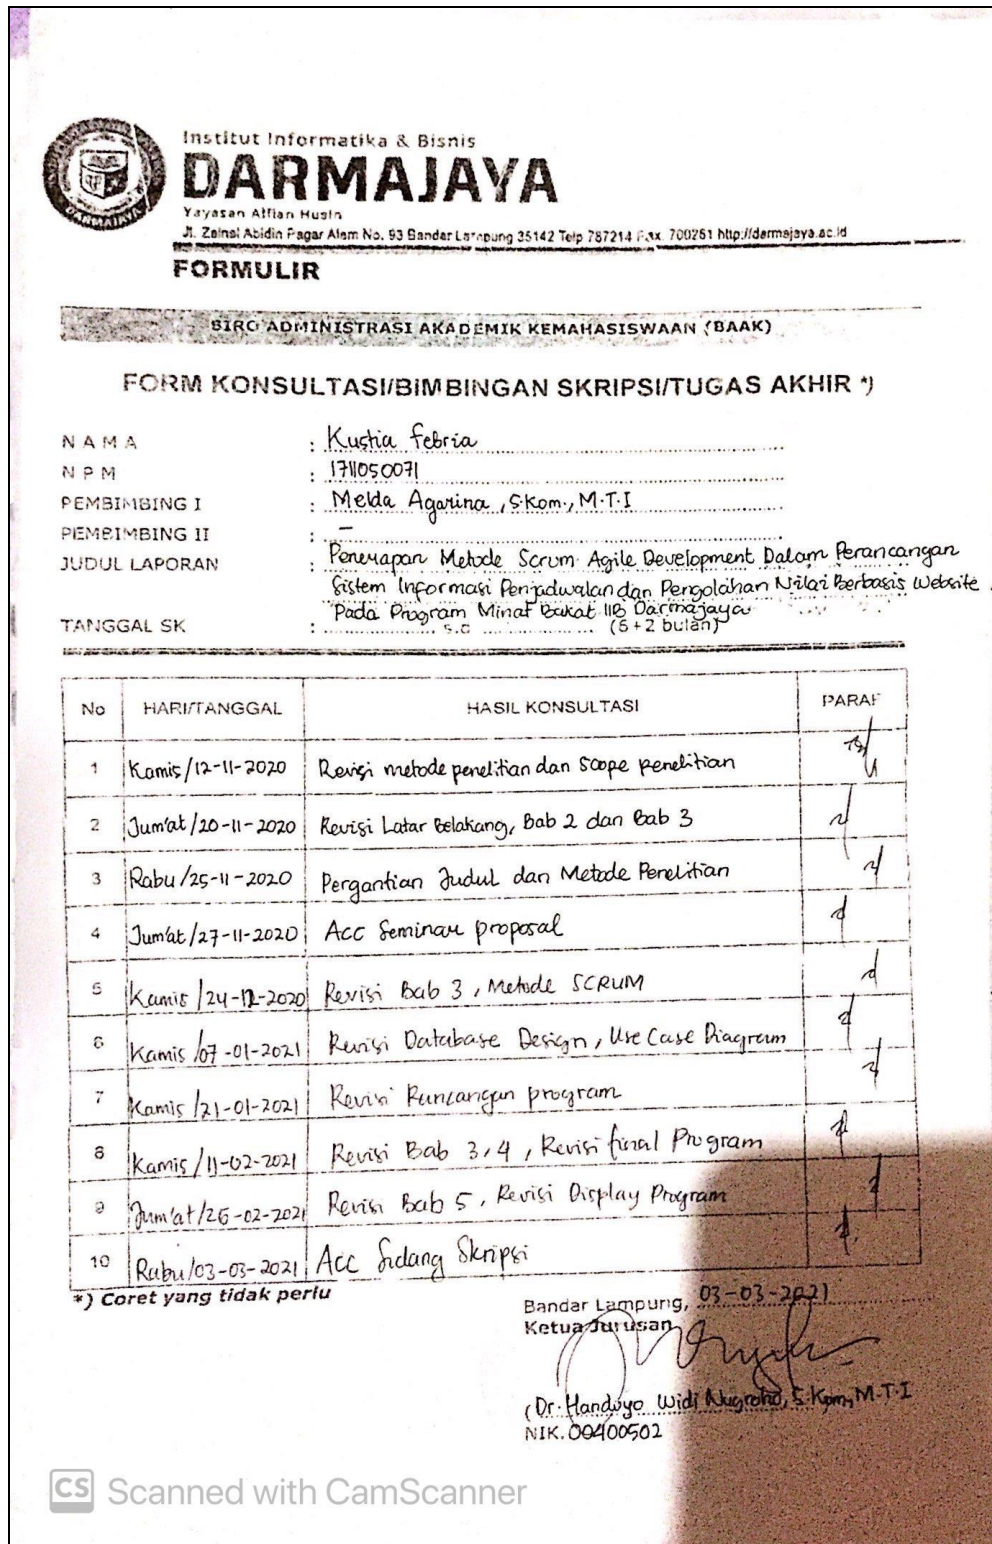 Institut Informatika & Bisnis
DARMAJAYA
Yayasan Alfian Husin
Jl. Zainal Abidin Pagar Alam No. 93 Bandar Lampung 35142 Telp 787214 Fax. 700261 http://darmajaya.ac.id
DARMAJAYA
FORMULIR
BIRO ADMINISTRASI AKADEMIK KEMAHASISWAAN (BAAK)
FORM KONSULTASI/BIMBINGAN SKRIPSI/TUGAS AKHIR *)
N A M A : Kustia Febria
N P M : 1711050071
PEMBIMBING I : Melda Agarina, S.Kom., M.T.I
PEMBIMBING II : –
JUDUL LAPORAN : Penerapan Metode Scrum Agile Development Dalam Perancangan
Sistem Informasi Penjadwalan dan Pengolahan Nilai Berbasis Website
Pada Program Minat Bakat IIB Darmajaya
TANGGAL SK : .................. s.d .................. (6+2 bulan)
No HARI/TANGGAL HASIL KONSULTASI PARAF
1 Kamis/12-11-2020 Revisi metode penelitian dan Scope penelitian
2 Jum'at/20-11-2020 Revisi Latar Belakang, Bab 2 dan Bab 3
3 Rabu/25-11-2020 Pergantian Judul dan Metode Penelitian
4 Jum'at/27-11-2020 Acc Seminar proposal
5 Kamis/24-12-2020 Revisi Bab 3, Metode SCRUM
6 Kamis/07-01-2021 Revisi Database Design, Use Case Diagram
7 Kamis/21-01-2021 Revisi Rancangan program
8 Kamis/11-02-2021 Revisi Bab 3,4, Revisi final Program
9 Jum'at/26-02-2021 Revisi Bab 5, Revisi Display Program
10 Rabu/03-03-2021 Acc Sidang Skripsi
*) Coret yang tidak perlu
Bandar Lampung, 03-03-2021
Ketua Jurusan
(Dr. Handoyo Widi Nugroho, S.Kom, M.T.I
NIK. 00400502
CS Scanned with CamScanner